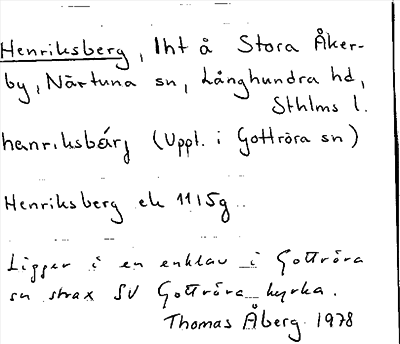 Henriksberg, lht å Stora Åker-
by, Närtuna sn, Långhundra hd,
Sthlms l.
henriksbárj (Uppl. i Gottröra sn)
Henriksberg ek 11I5g
Ligger i en enklav i Gottröra
sn strax SV Gottröra kyrka.
Thomas Åberg 1978